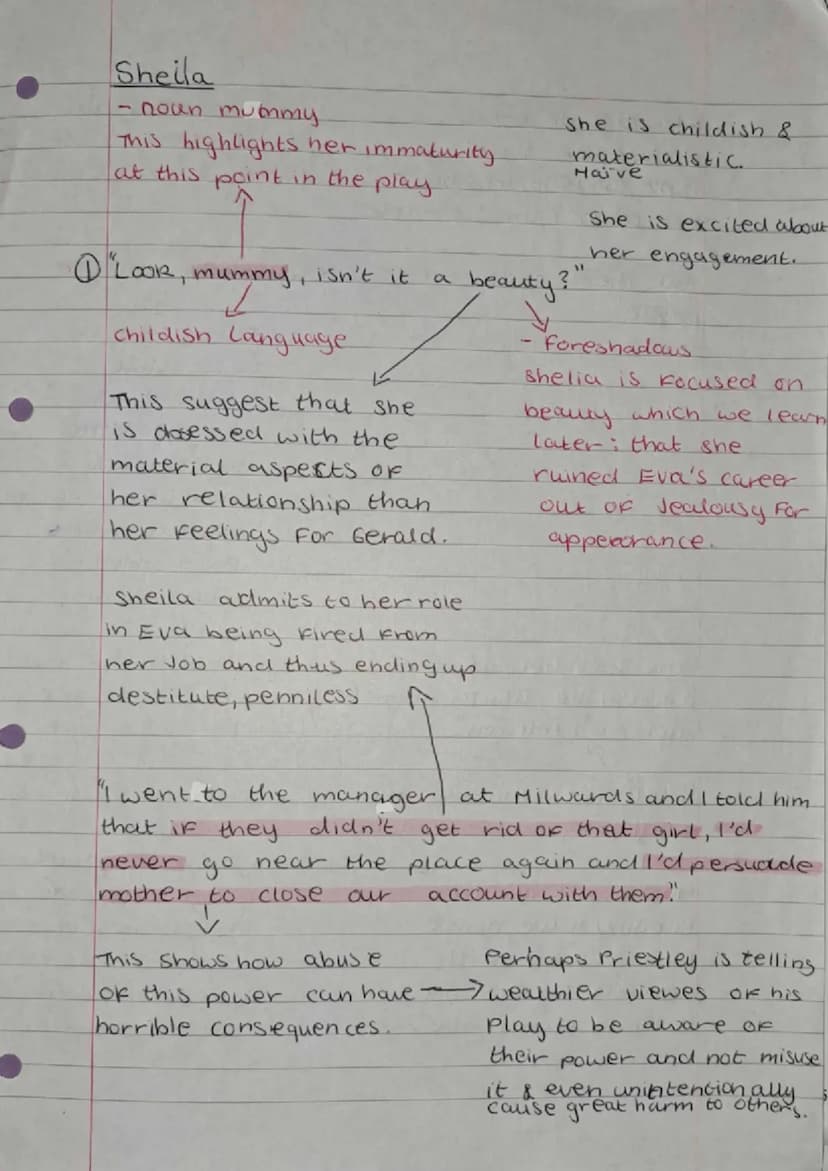 Sheila
- noun mummy
This highlights her immaturity
at this point in the play
she is childish &
materialistic.
Naïve
she is excited about
her engagement.
① "Look, mummy, isn't it a beauty?"
childish language
- Foreshadows
Shelia is focused on
beauty which we learn
later: that she
ruined Eva's career
out of Jealousy for
appearance.
This suggest that she
is obsessed with the
material aspects of
her relationship than
her feelings for Gerald.
Sheila admits to her role
in Eva being fired from
her Job and thus ending up
destitute, penniless
"I went to the manager at Milwards and I told him
that if they didn't get rid of that girl, I'd
never go near the place again and I'd persuade
mother to close our account with them."
This shows how abuse
of this power can have
horrible consequences.
Perhaps Priestley is telling
wealthier viewes of his
play to be aware of
their power and not misuse
it & even unintentionally
cause great harm to others.